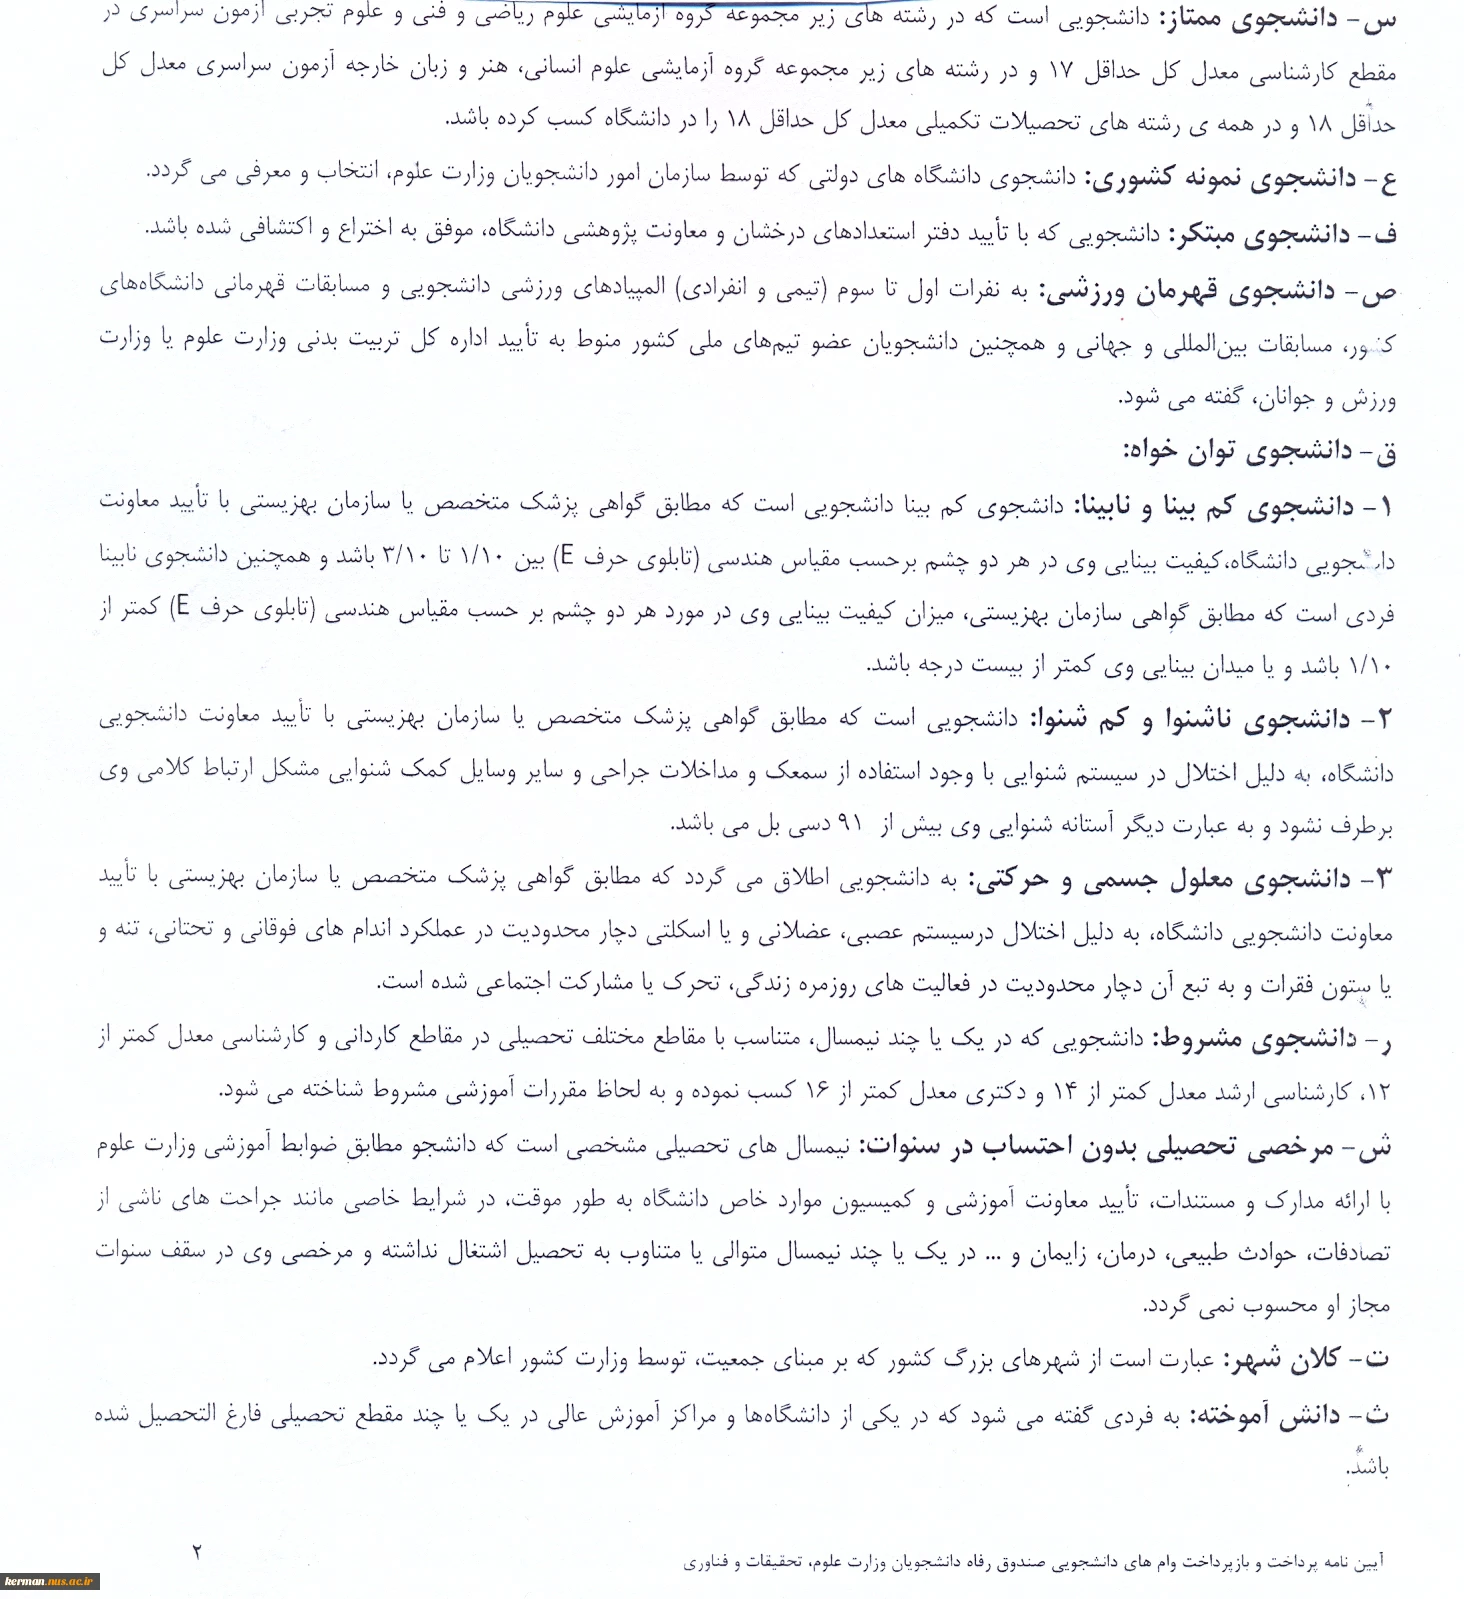 س- دانشجوی ممتاز: دانشجویی است که در رشته های زیر مجموعه گروه آزمایشی علوم ریاضی و فنی و علوم تجربی آزمون سراسری در
مقطع کارشناسی معدل کل حداقل ۱۷ و در رشته های زیر مجموعه گروه آزمایشی علوم انسانی، هنر و زبان خارجه آزمون سراسری معدل کل
حداقل ۱۸ و در همه ی رشته های تحصیلات تکمیلی معدل کل حداقل ۱۸ را در دانشگاه کسب کرده باشد.
ع- دانشجوی نمونه کشوری: دانشجوی دانشگاه های دولتی که توسط سازمان امور دانشجویان وزارت علوم، انتخاب و معرفی می گردد.
ف- دانشجوی مبتکر: دانشجویی که با تأیید دفتر استعدادهای درخشان و معاونت پژوهشی دانشگاه، موفق به اختراع و اکتشافی شده باشد.
ص- دانشجوی قهرمان ورزشی: به نفرات اول تا سوم (تیمی و انفرادی) المپیادهای ورزشی دانشجویی و مسابقات قهرمانی دانشگاه‌های
کشور، مسابقات بین‌المللی و جهانی و همچنین دانشجویان عضو تیم‌های ملی کشور منوط به تأیید اداره کل تربیت بدنی وزارت علوم یا وزارت
ورزش و جوانان، گفته می شود.
ق- دانشجوی توان خواه:
۱- دانشجوی کم بینا و نابینا: دانشجوی کم بینا دانشجویی است که مطابق گواهی پزشک متخصص یا سازمان بهزیستی با تأیید معاونت
دانشجویی دانشگاه،کیفیت بینایی وی در هر دو چشم برحسب مقیاس هندسی (تابلوی حرف E) بین ۱/۱۰ تا ۳/۱۰ باشد و همچنین دانشجوی نابینا
فردی است که مطابق گواهی سازمان بهزیستی، میزان کیفیت بینایی وی در مورد هر دو چشم بر حسب مقیاس هندسی (تابلوی حرف E) کمتر از
۱/۱۰ باشد و یا میدان بینایی وی کمتر از بیست درجه باشد.
۲- دانشجوی ناشنوا و کم شنوا: دانشجویی است که مطابق گواهی پزشک متخصص یا سازمان بهزیستی با تأیید معاونت دانشجویی
دانشگاه، به دلیل اختلال در سیستم شنوایی با وجود استفاده از سمعک و مداخلات جراحی و سایر وسایل کمک شنوایی مشکل ارتباط کلامی وی
برطرف نشود و به عبارت دیگر آستانه شنوایی وی بیش از ۹۱ دسی بل می باشد.
۳- دانشجوی معلول جسمی و حرکتی: به دانشجویی اطلاق می گردد که مطابق گواهی پزشک متخصص یا سازمان بهزیستی با تأیید
معاونت دانشجویی دانشگاه، به دلیل اختلال درسیستم عصبی، عضلانی و یا اسکلتی دچار محدودیت در عملکرد اندام های فوقانی و تحتانی، تنه و
یا ستون فقرات و به تبع آن دچار محدودیت در فعالیت های روزمره زندگی، تحرک یا مشارکت اجتماعی شده است.
ر- دانشجوی مشروط: دانشجویی که در یک یا چند نیمسال، متناسب با مقاطع مختلف تحصیلی در مقاطع کاردانی و کارشناسی معدل کمتر از
۱۲، کارشناسی ارشد معدل کمتر از ۱۴ و دکتری معدل کمتر از ۱۶ کسب نموده و به لحاظ مقررات آموزشی مشروط شناخته می شود.
ش- مرخصی تحصیلی بدون احتساب در سنوات: نیمسال های تحصیلی مشخصی است که دانشجو مطابق ضوابط آموزشی وزارت علوم
با ارائه مدارک و مستندات، تأیید معاونت آموزشی و کمیسیون موارد خاص دانشگاه به طور موقت، در شرایط خاصی مانند جراحت های ناشی از
تصادفات، حوادث طبیعی، درمان، زایمان و ... در یک یا چند نیمسال متوالی یا متناوب به تحصیل اشتغال نداشته و مرخصی وی در سقف سنوات
مجاز او محسوب نمی گردد.
ت- کلان شهر: عبارت است از شهرهای بزرگ کشور که بر مبنای جمعیت، توسط وزارت کشور اعلام می گردد.
ث- دانش آموخته: به فردی گفته می شود که در یکی از دانشگاه‌ها و مراکز آموزش عالی در یک یا چند مقطع تحصیلی فارغ التحصیل شده
باشد.
آیین نامه پرداخت و بازپرداخت وام های دانشجویی صندوق رفاه دانشجویان وزارت علوم، تحقیقات و فناوری
۲
kerman.nus.ac.ir